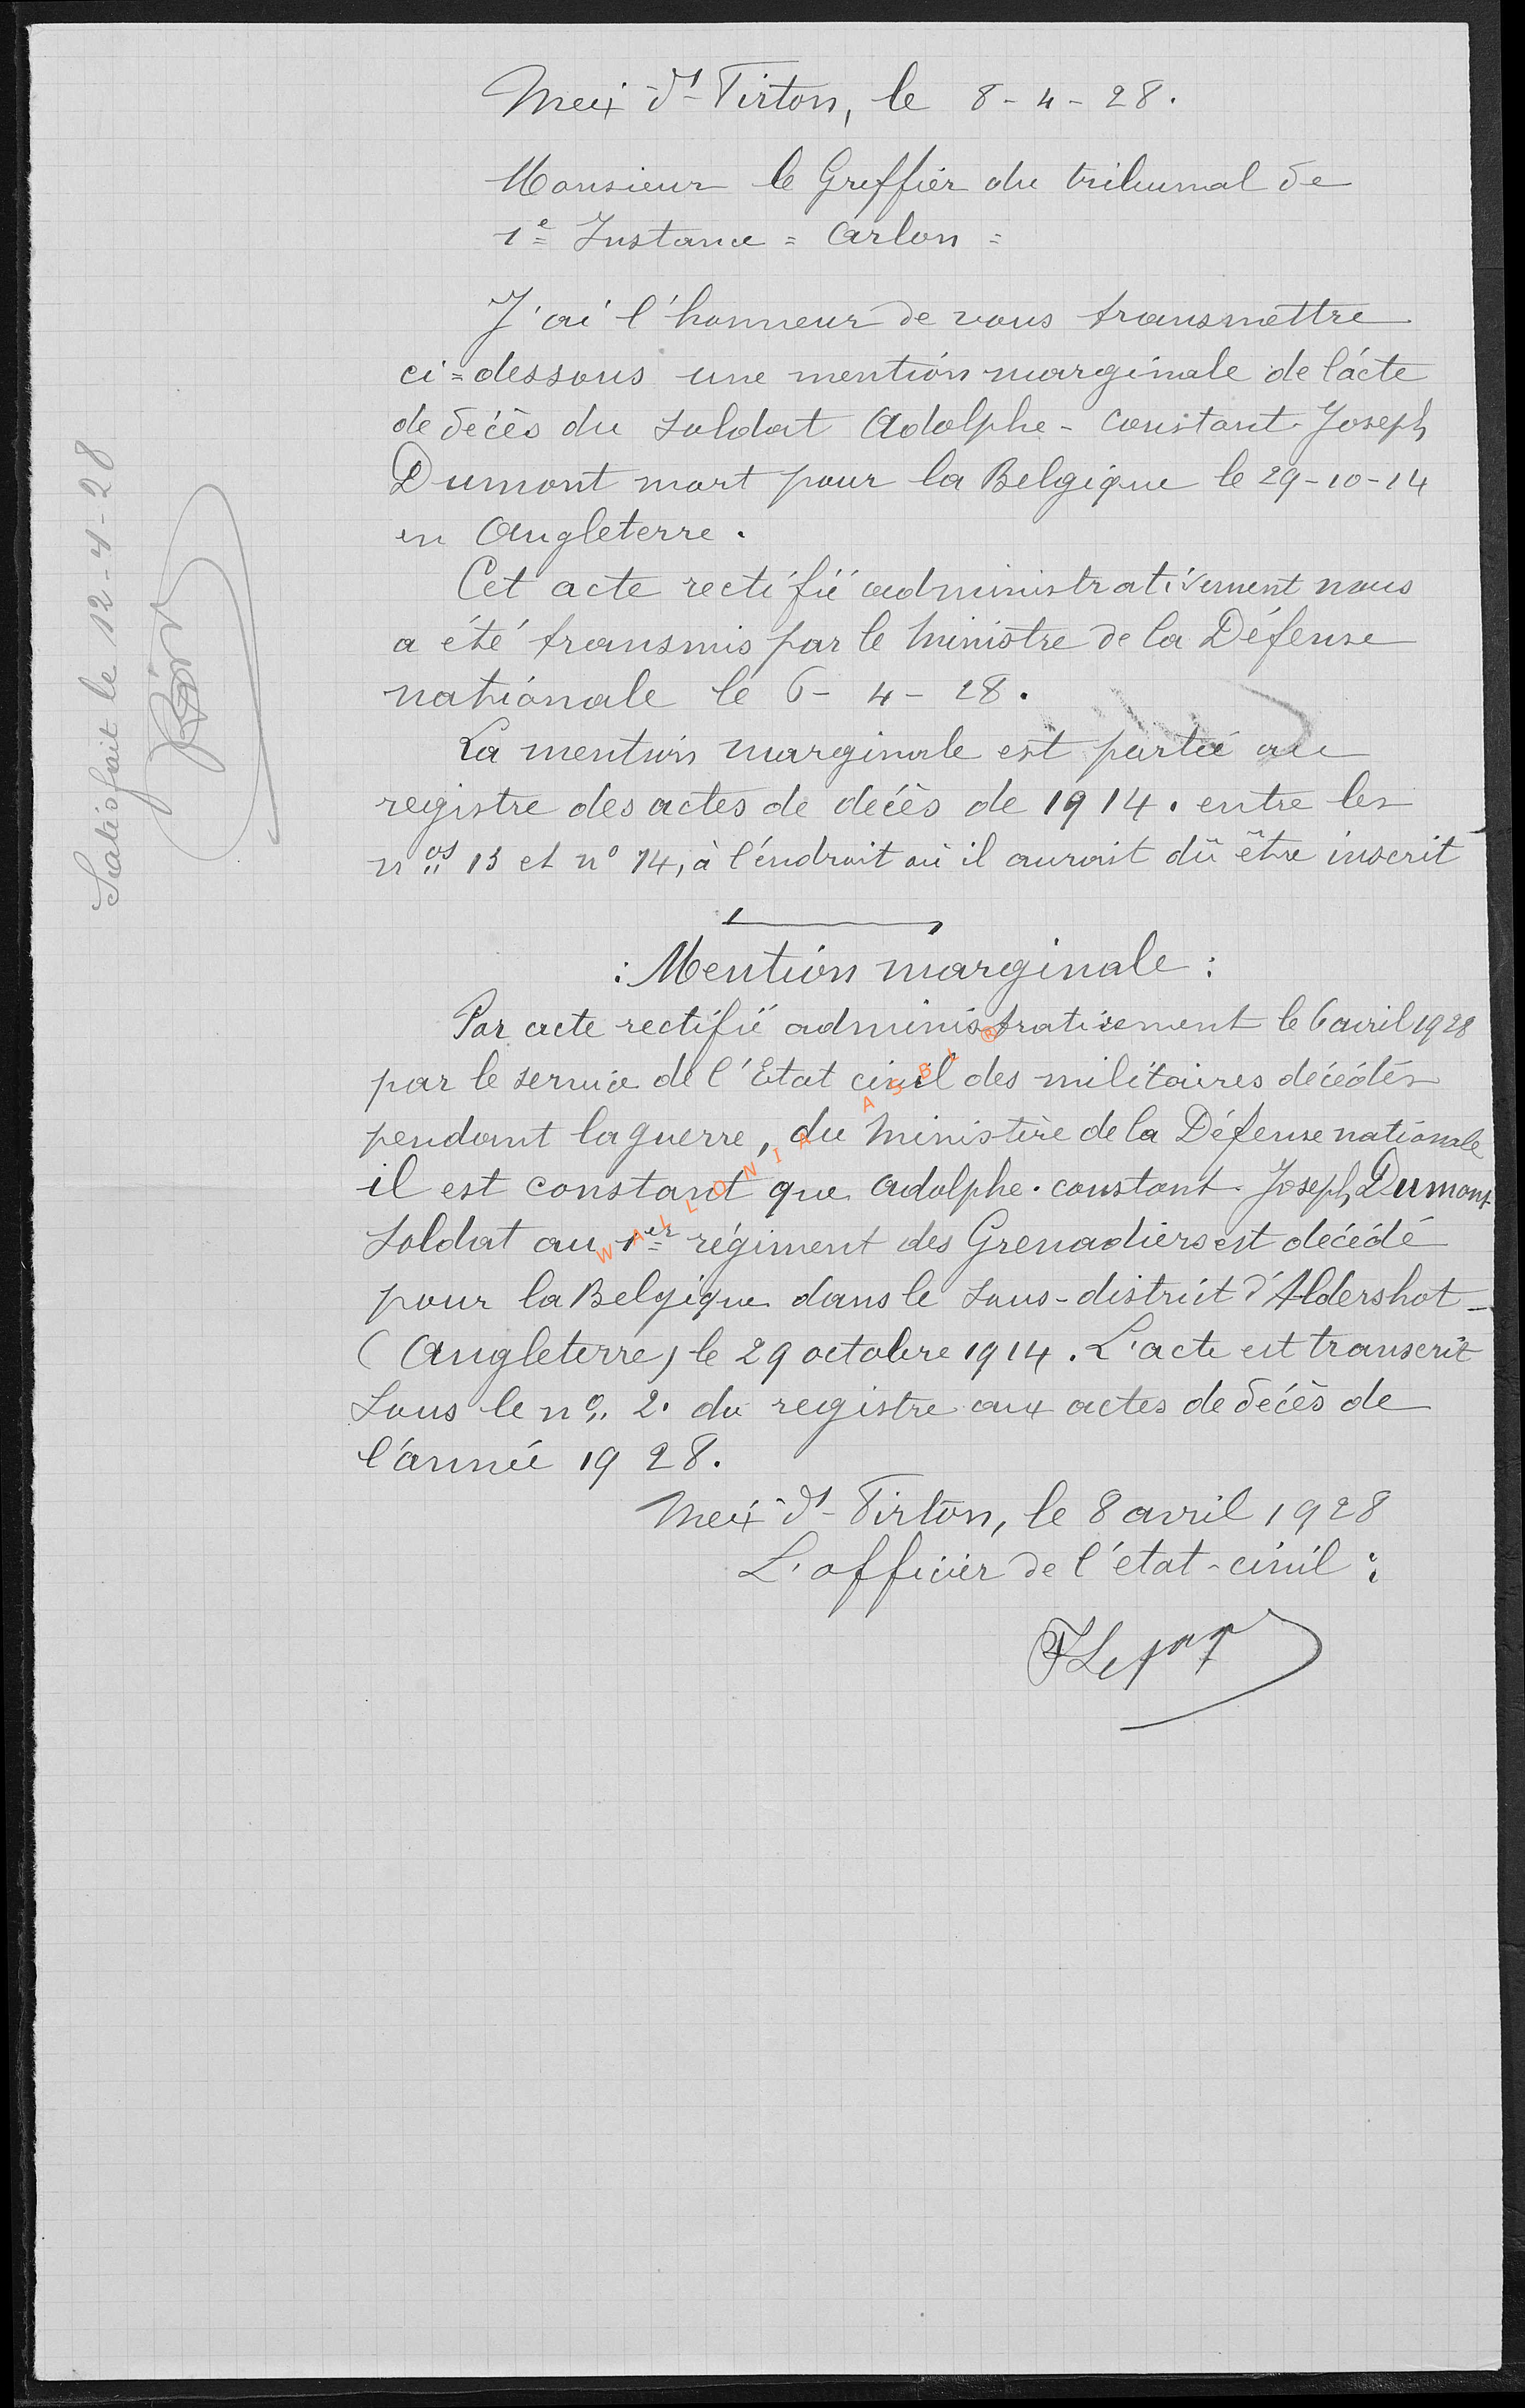 Meix dt Virton, le 8-4-28.
Monsieur le Greffier du tribunal de
1e Instance = Arlon =
J'ai l'honneur de vous transmettre
ci=dessous une mention marginale de l'acte
de décès du soldat Adolphe-Constant-Joseph
Dumont mort pour la Belgique le 29-10-14
en Angleterre.
Cet acte rectifié administrativement nous
a été transmis par le Ministre de la Défense
nationale le 6-4-28.
La mention marginale est portée au
registre des actes de décès de 1914. entre les
nos 13 et no 14, à l'endroit où il aurait dû être inscrit
: Mention marginale :
Par acte rectifié administrativement le 6 avril 1928
par le service de l'Etat civil des militaires décédés
pendant la guerre, du Ministère de la Défense nationale
il est constant que Adolphe. constant. Joseph Dumont
soldat au 1er régiment des Grenadiers est décédé
pour la Belgique dans le sous-district d'Aldershot-
(Angleterre) le 29 octobre 1914. L'acte est transcrit
sous le no 2. du registre aux actes de décès de
l'année 1928.
Meix dt-Virton, le 8 avril 1928
L'officier de l'état-civil :
Satisfait le 12-4-28
WALLONIA ASBL ®